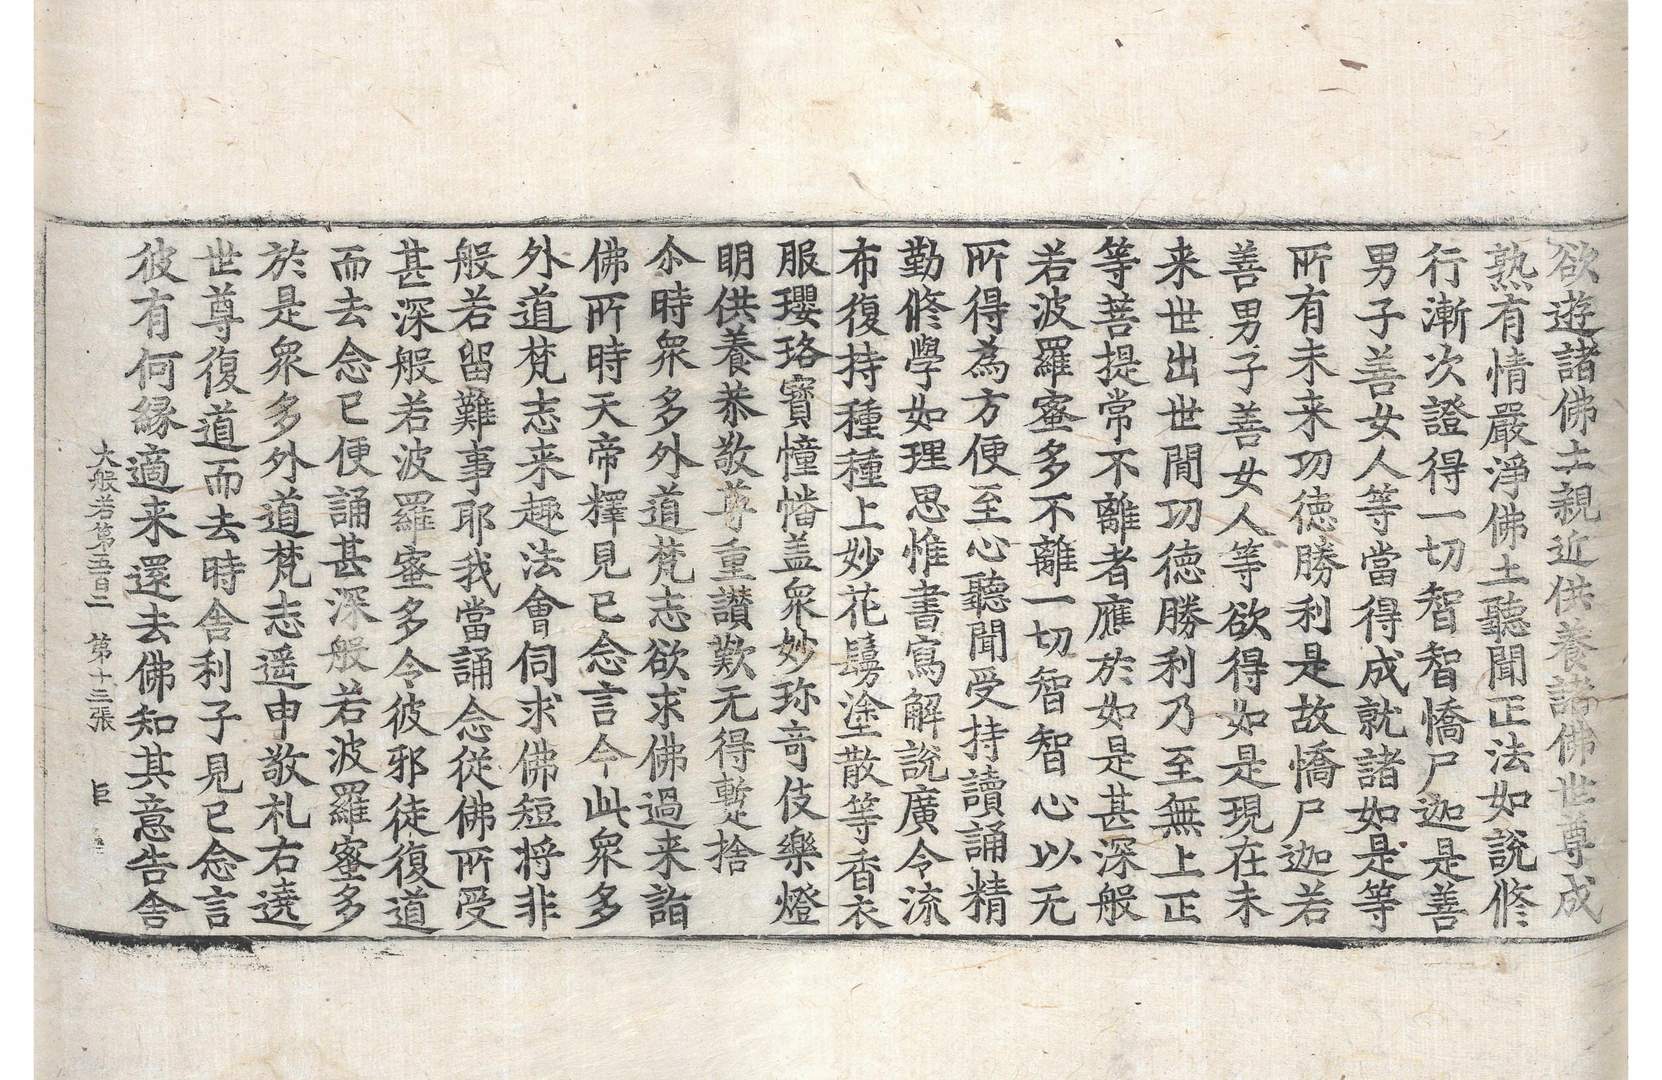 欲遊諸佛土親近供養諸佛世尊成
熟有情嚴淨佛土聽聞正法如說修
行漸次證得一切智智憍尸迦是善
男子善女人等當得成就諸如是等
所有未来功徳勝利是故憍尸迦若
善男子善女人等欲得如是現在未
来世出世間功徳勝利乃至無上正
等菩提常不離者應於如是甚深般
若波羅蜜多不離一切智智心以无
所得為方便至心聽聞受持讀誦精
勤修學如理思惟書寫解說廣令流
布復持種種上妙花鬘塗散等香衣
服瓔珞寶幢幡盖衆妙珎竒伎樂燈
明供養恭敬尊重讃歎无得暫捨
尒時衆多外道梵志欲求佛過来詣
佛所時天帝釋見已念言今此衆多
外道梵志来趣法會伺求佛短將非
般若留難事耶我當誦念從佛所受
甚深般若波羅蜜多令彼邪徒復道
而去念已便誦甚深般若波羅蜜多
於是衆多外道梵志遥申敬礼右遶
世尊復道而去時舎利子見已念言
彼有何縁適来還去佛知其意告舎
大般若第五百二 第十三張 巨